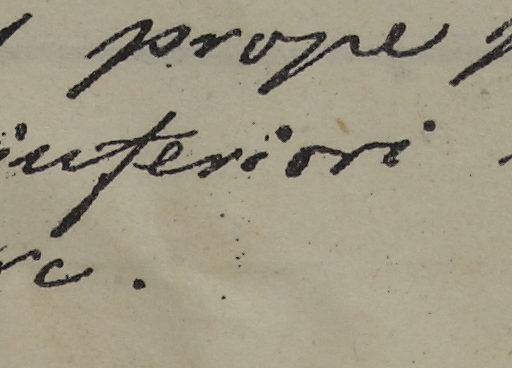 prope
inferiori